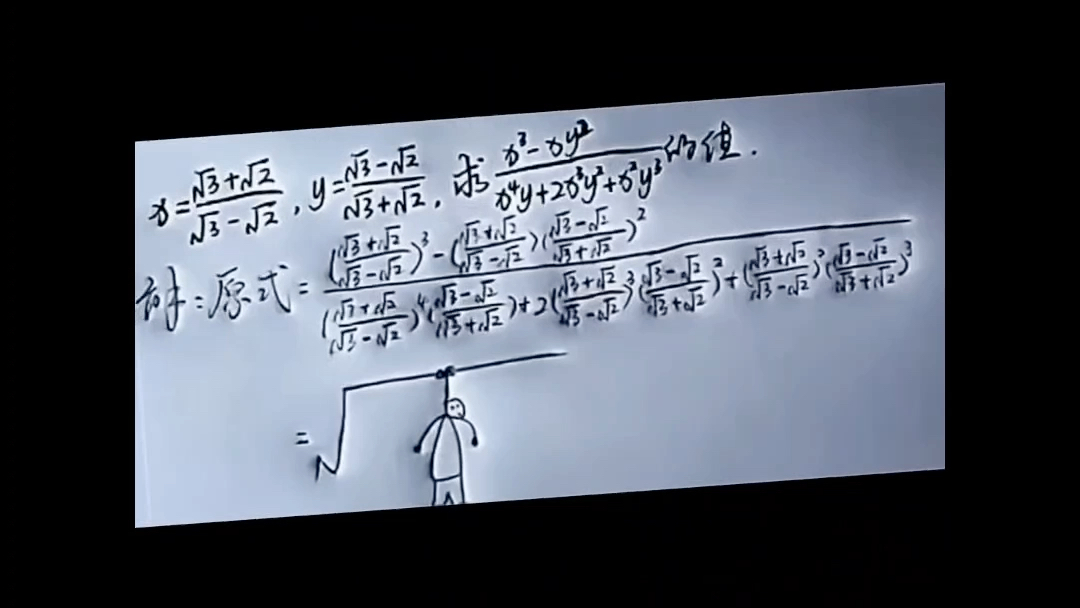 x=(√3+√2)/(√3-√2), y=(√3-√2)/(√3+√2), 求 (x³-xy²)/(x⁴y+2x³y²+x²y³) 的值.
解:原式= [((√3+√2)/(√3-√2))³-((√3+√2)/(√3-√2))((√3-√2)/(√3+√2))²]/[((√3+√2)/(√3-√2))⁴((√3-√2)/(√3+√2))+2((√3+√2)/(√3-√2))³((√3-√2)/(√3+√2))²+((√3+√2)/(√3-√2))²((√3-√2)/(√3+√2))³]
= √